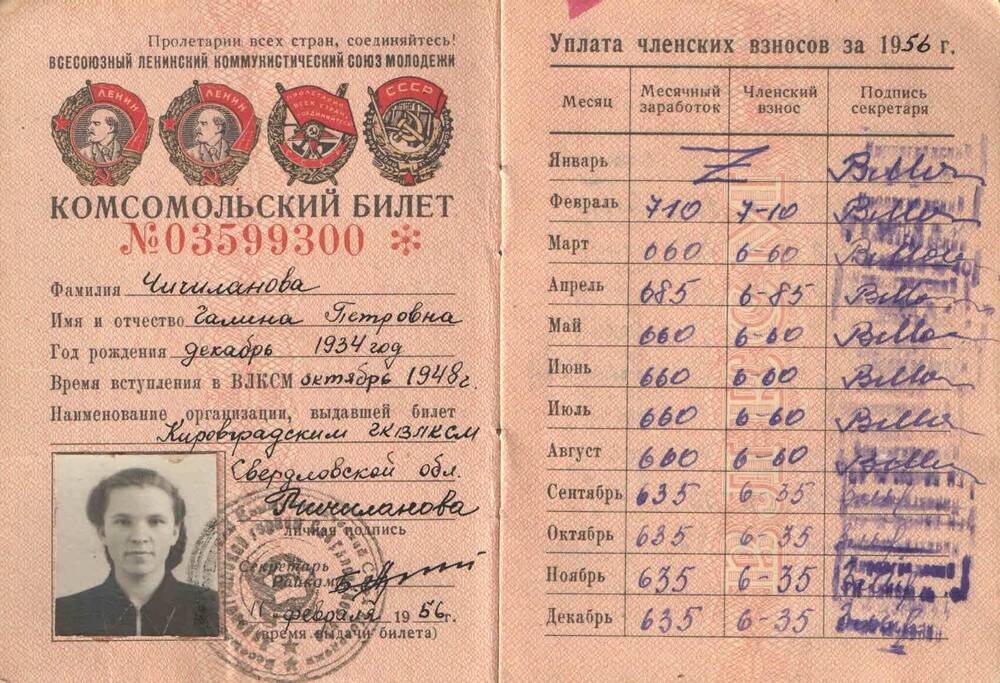 Пролетарии всех стран, соединяйтесь!
ВСЕСОЮЗНЫЙ ЛЕНИНСКИЙ КОММУНИСТИЧЕСКИЙ СОЮЗ МОЛОДЕЖИ
ЛЕНИН ЛЕНИН ПРОЛЕТАРИИ ВСЕХ СТРАН СОЕДИНЯЙТЕСЬ СССР
КОМСОМОЛЬСКИЙ БИЛЕТ
№03599300 *
Фамилия Чичиланова
Имя и отчество Галина Петровна
Год рождения декабрь 1934 год
Время вступления в ВЛКСМ октябрь 1948г.
Наименование организации, выдавшей билет
Кировградским ГК ВЛКСМ
Свердловской обл.
Чичиланова
личная подпись
Секретарь
Райкома
11 февраля 1956г.
(время выдачи билета)
Уплата членских взносов за 1956 г.
Месяц Месячный заработок Членский взнос Подпись секретаря
Январь Z
Февраль 710 7-10
Март 660 6-60
Апрель 685 6-85
Май 660 6-60
Июнь 660 6-60
Июль 660 6-60
Август 660 6-60
Сентябрь 635 6-35
Октябрь 635 6-35
Ноябрь 635 6-35
Декабрь 635 6-35